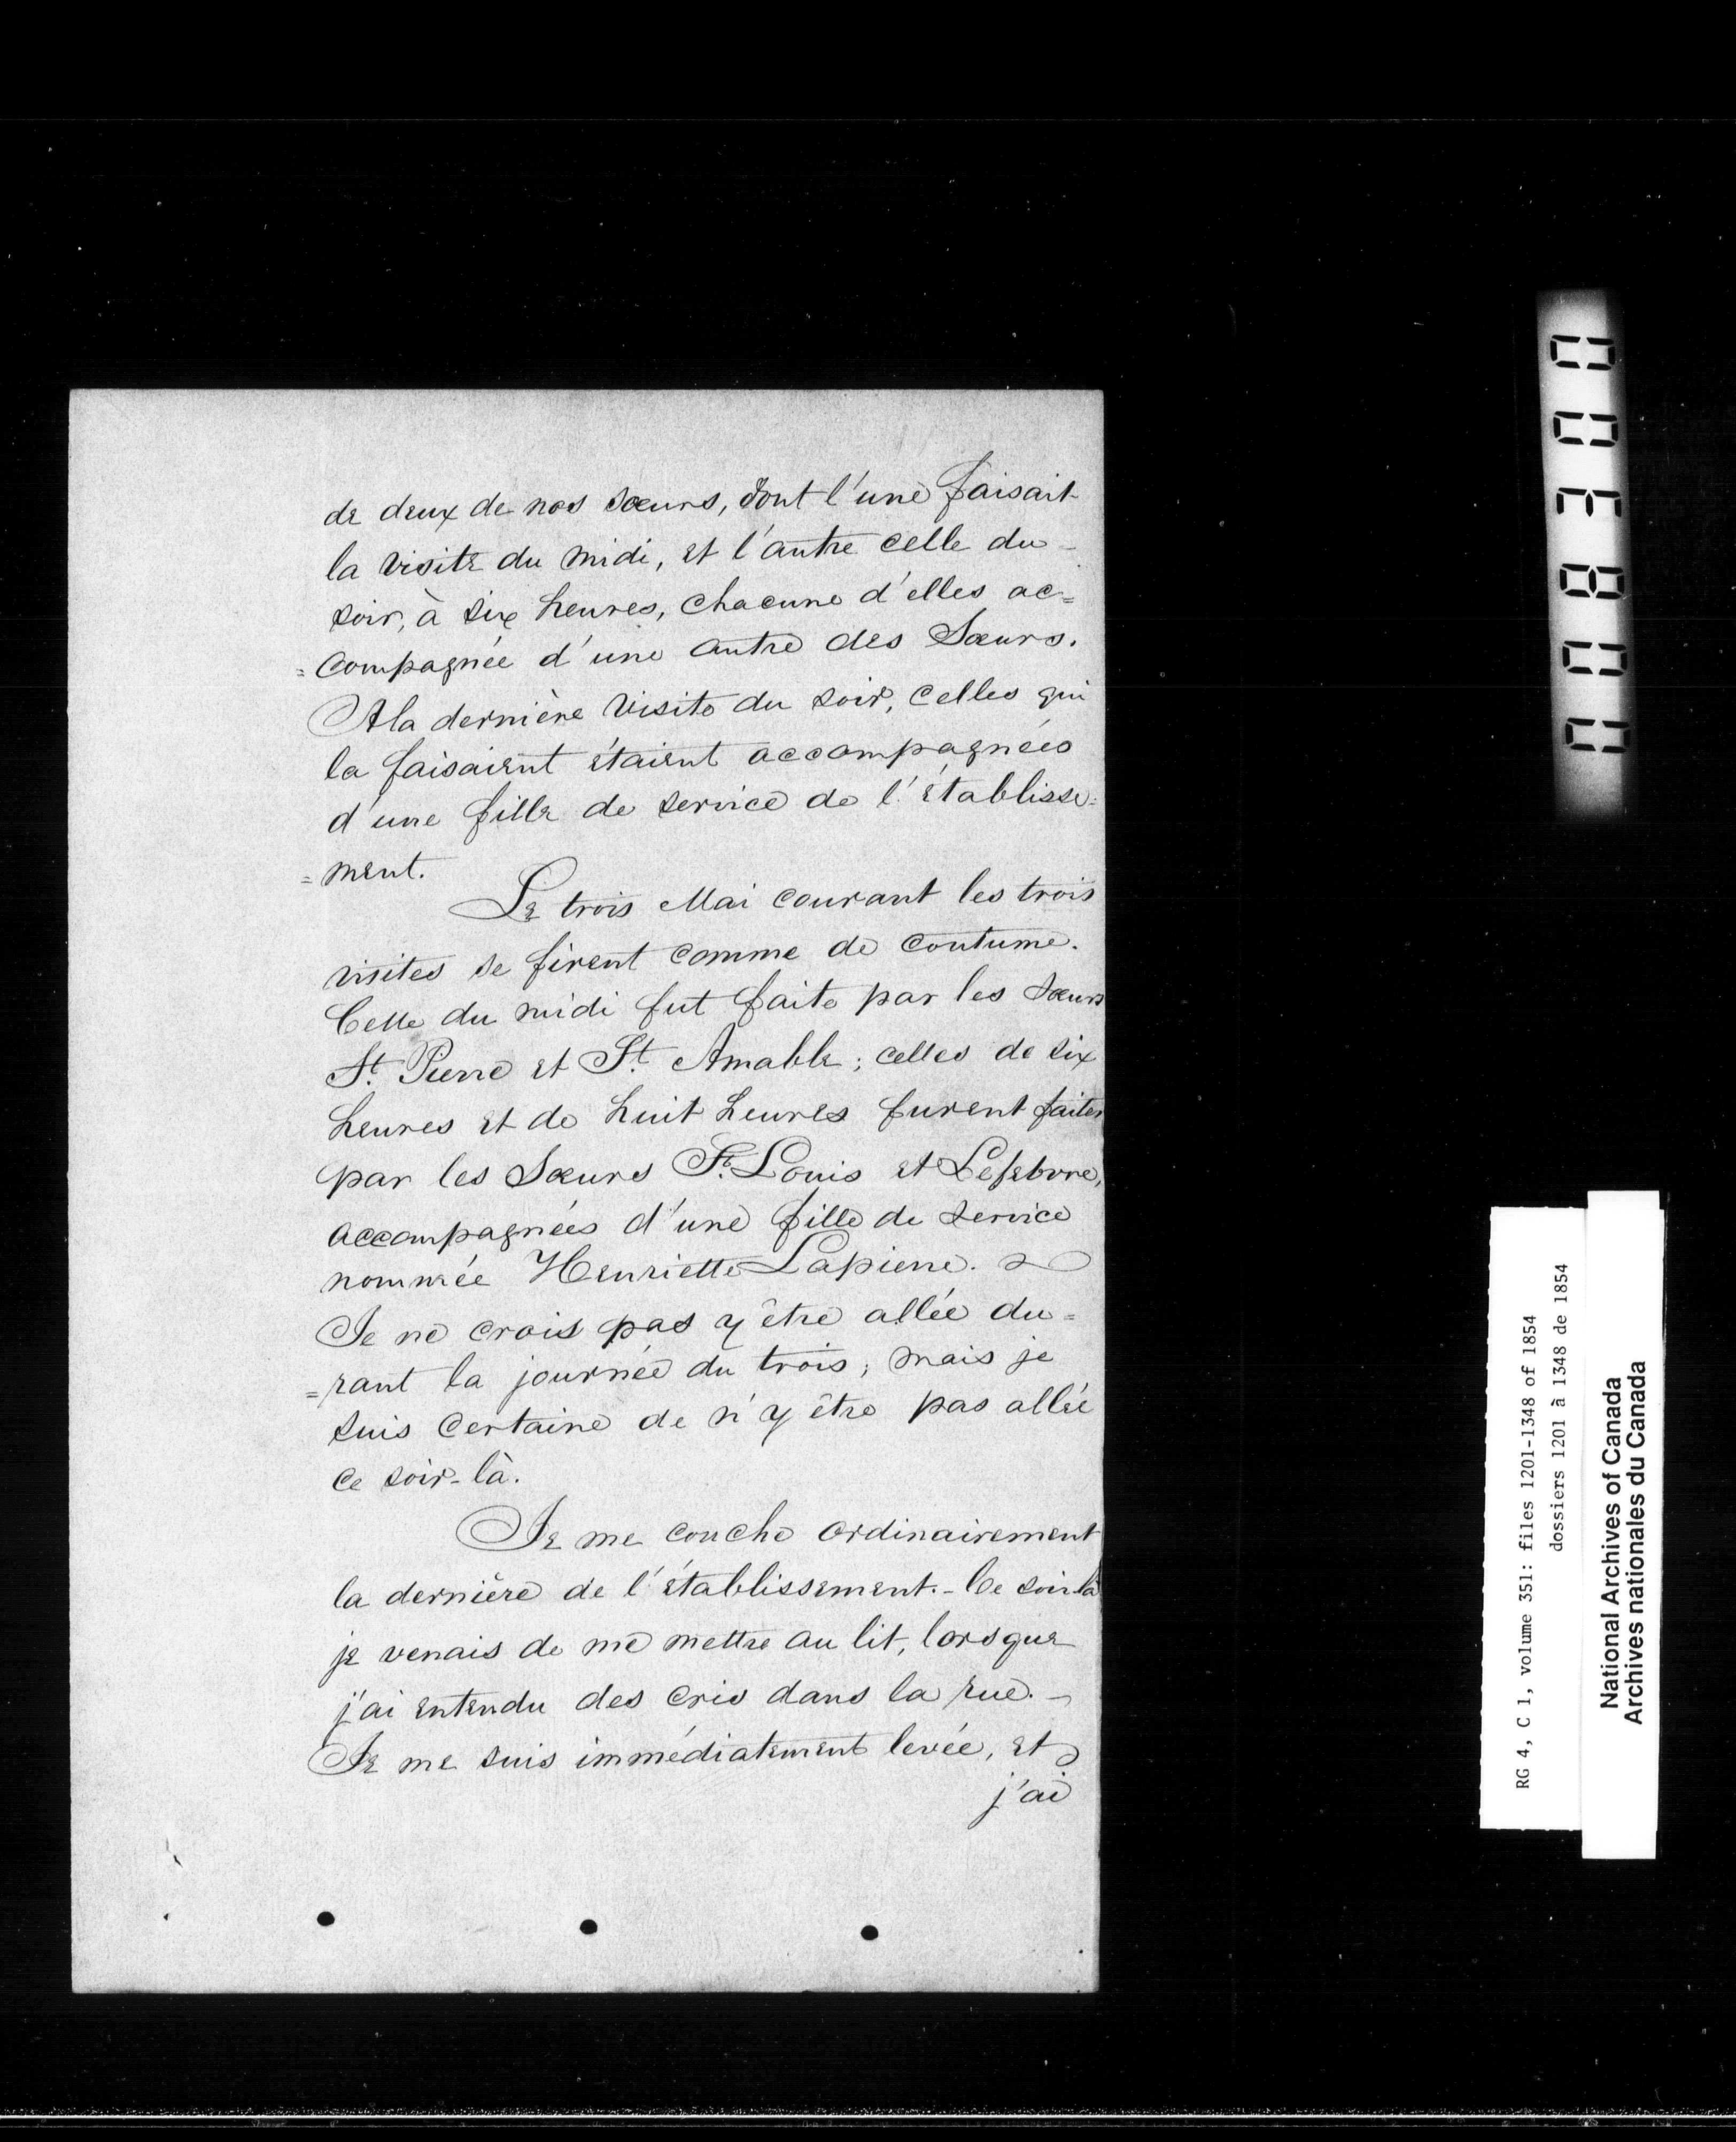 de deux de nos Sœurs, dont l'une faisait
la visite du midi, et l'autre celle du
soir, à six heures, chacune d'elles ac=
=compagnée d'une autre des Sœurs.
A la dernière visite du soir, celles qui
la faisaient étaient accompagnées
d'une fille de service de l'établisse=
=ment.
Le trois Mai courant les trois
visites se firent comme de coutume.
Celle du midi fut faite par les Sœurs
St. Pierre et St. Amable; celles de six
heures et de huit heures furent faites
par les Sœurs St. Louis et Lefebvre,
accompagnées d'une fille de service
nommée Henriette Lapierre.
Je ne crois pas y être allée du=
=rant la journée du trois; mais je
suis certaine de n'y être pas allée
ce soir-là.
Je me couche ordinairement
la dernière de l'établissement. - Ce soir-là
je venais de me mettre au lit, lorsque
j'ai entendu des cris dans la rue. -
Je me suis immédiatement levée, et
j'ai
RG 4, C 1, volume 351: files 1201-1348 of 1854
dossiers 1201 à 1348 de 1854
National Archives of Canada
Archives nationales du Canada